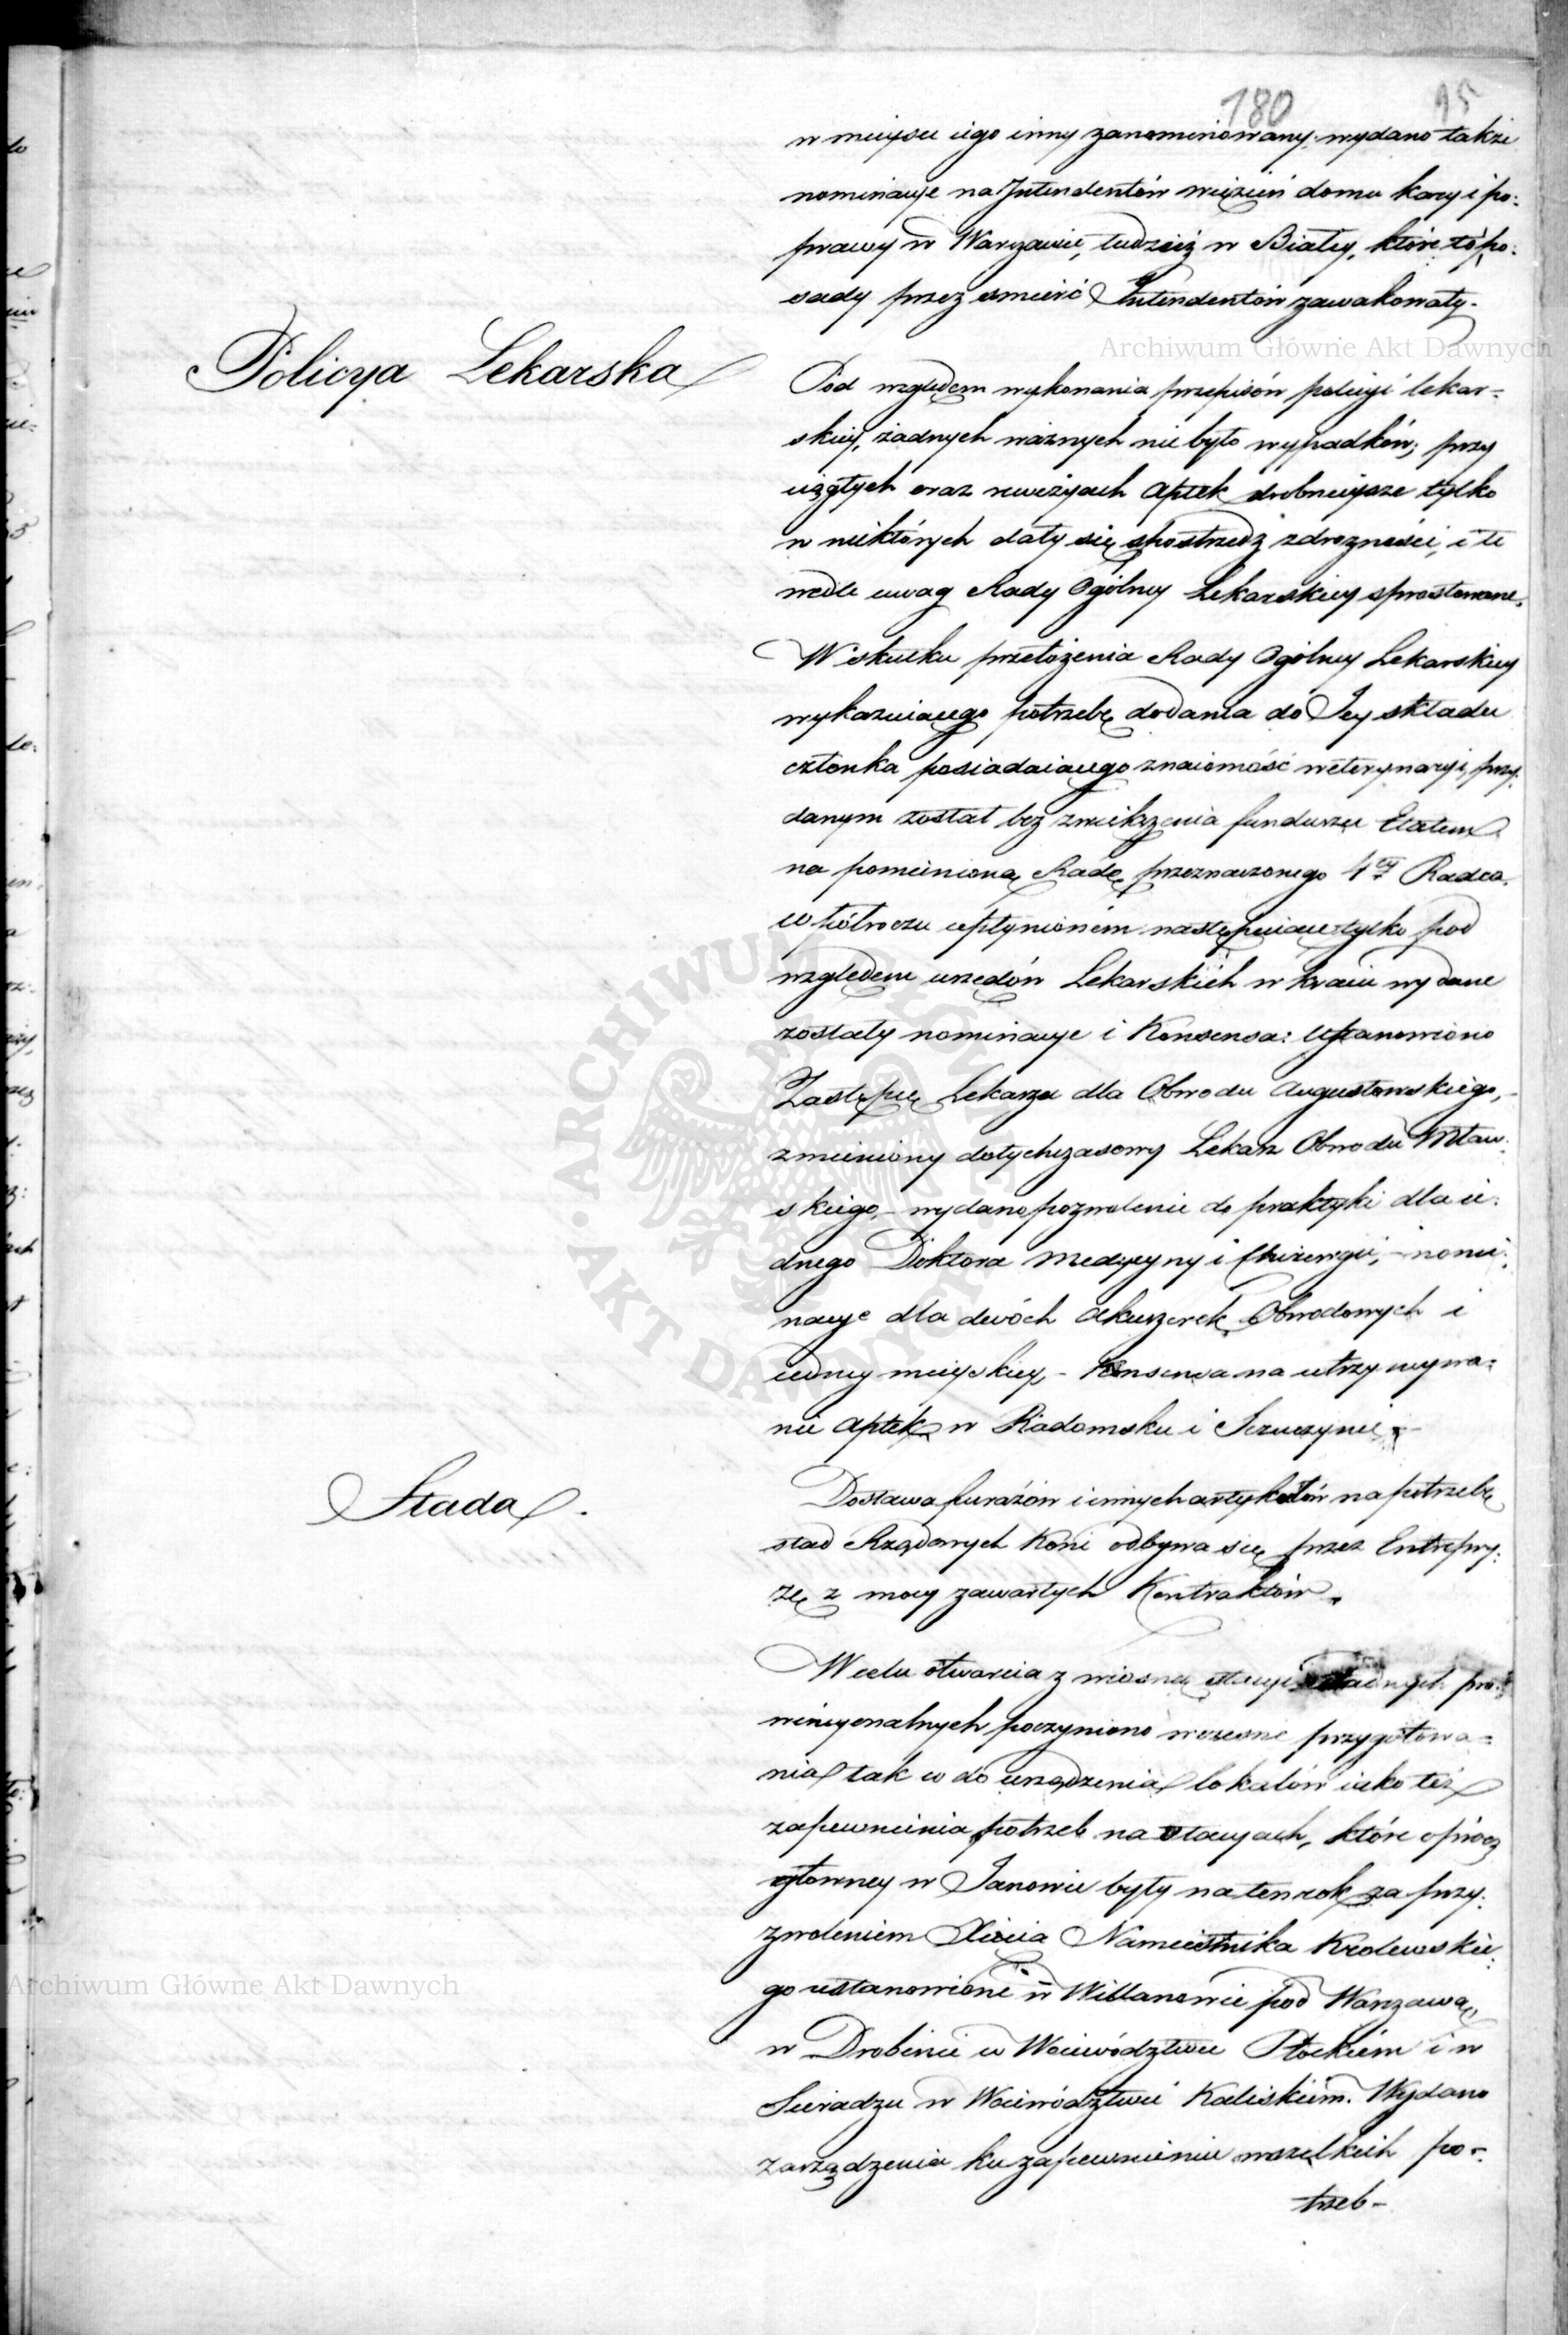 180 95
w mieyscu iego inny zanominowany; wydano także
nominacye na Intendentów więzień domu kary i po-
prawy w Warszawie, tudzież w Białey, które to po-
sady przez śmierć Intendentów zawakowały.
Policya Lekarska
Pod względem wykonania przepisów policyi lekar-
skiey, żadnych ważnych nie było wypadków; przy
ciągłych oraz rewizyach Aptek drobnieysze tylko
w niektórych dały się spostrzedz zdrożności, i te
wedle uwag Rady Ogólney Lekarskiey sprostowane.
W skutku przełożenia Rady Ogólney Lekarskiey
wykazuiącego potrzebę dodania do Jey składu
członka posiadaiącego znaiomość weterynaryi, przy-
danym został bez zwiększenia funduszu Etatem
na pomienioną Radę przeznaczonego 4ty Radca.
w półroczu upłynioném następuiące tylko pod
względem urzędów Lekarskich w kraiu wydane
zostały nominacye i Konsensa: Ustanowiono
Zastępcę Lekarza dla Obwodu Augustowskiego,-
zmieniony dotychczasowy Lekarz Obwodu Mław-
skiego,- wydano pozwolenie do praktyki dla ie-
dnego Doktora Medycyny i Chirurgii,- nomi-
nacye dla dwóch Akuszerek Obwodowych i
iedney mieyskiey,- Konsensa na utrzymywa-
nie Aptek w Radomsku i Szczuczynie.-
Stada.
Dostawa furażów i innych artykułów na potrzebę
stad Rządowych Koni odbywa się przez Entrepry-
zę z mocy zawartych Kontraktów.
W celu otwarcia z wiosną stacyi stadnych pro-
wincyonalnych poczyniono wczesne przygotowa-
nia tak co do urządzenia lokalów iako też
zapewnienia potrzeb na stacyach, które oprócz
główney w Janowie były na ten rok za przy-
zwoleniem Xięcia Namiestnika Królewskie-
go ustanowione w Willanowie pod Warszawą,
w Drobinie w Woiewództwie Płockiém i w
Sieradzu w Woiewództwie Kaliskiém. Wydano
zarządzenia ku zapewnieniu wszelkich po-
trzeb-
Archiwum Główne Akt Dawnych
Archiwum Główne Akt Dawnych